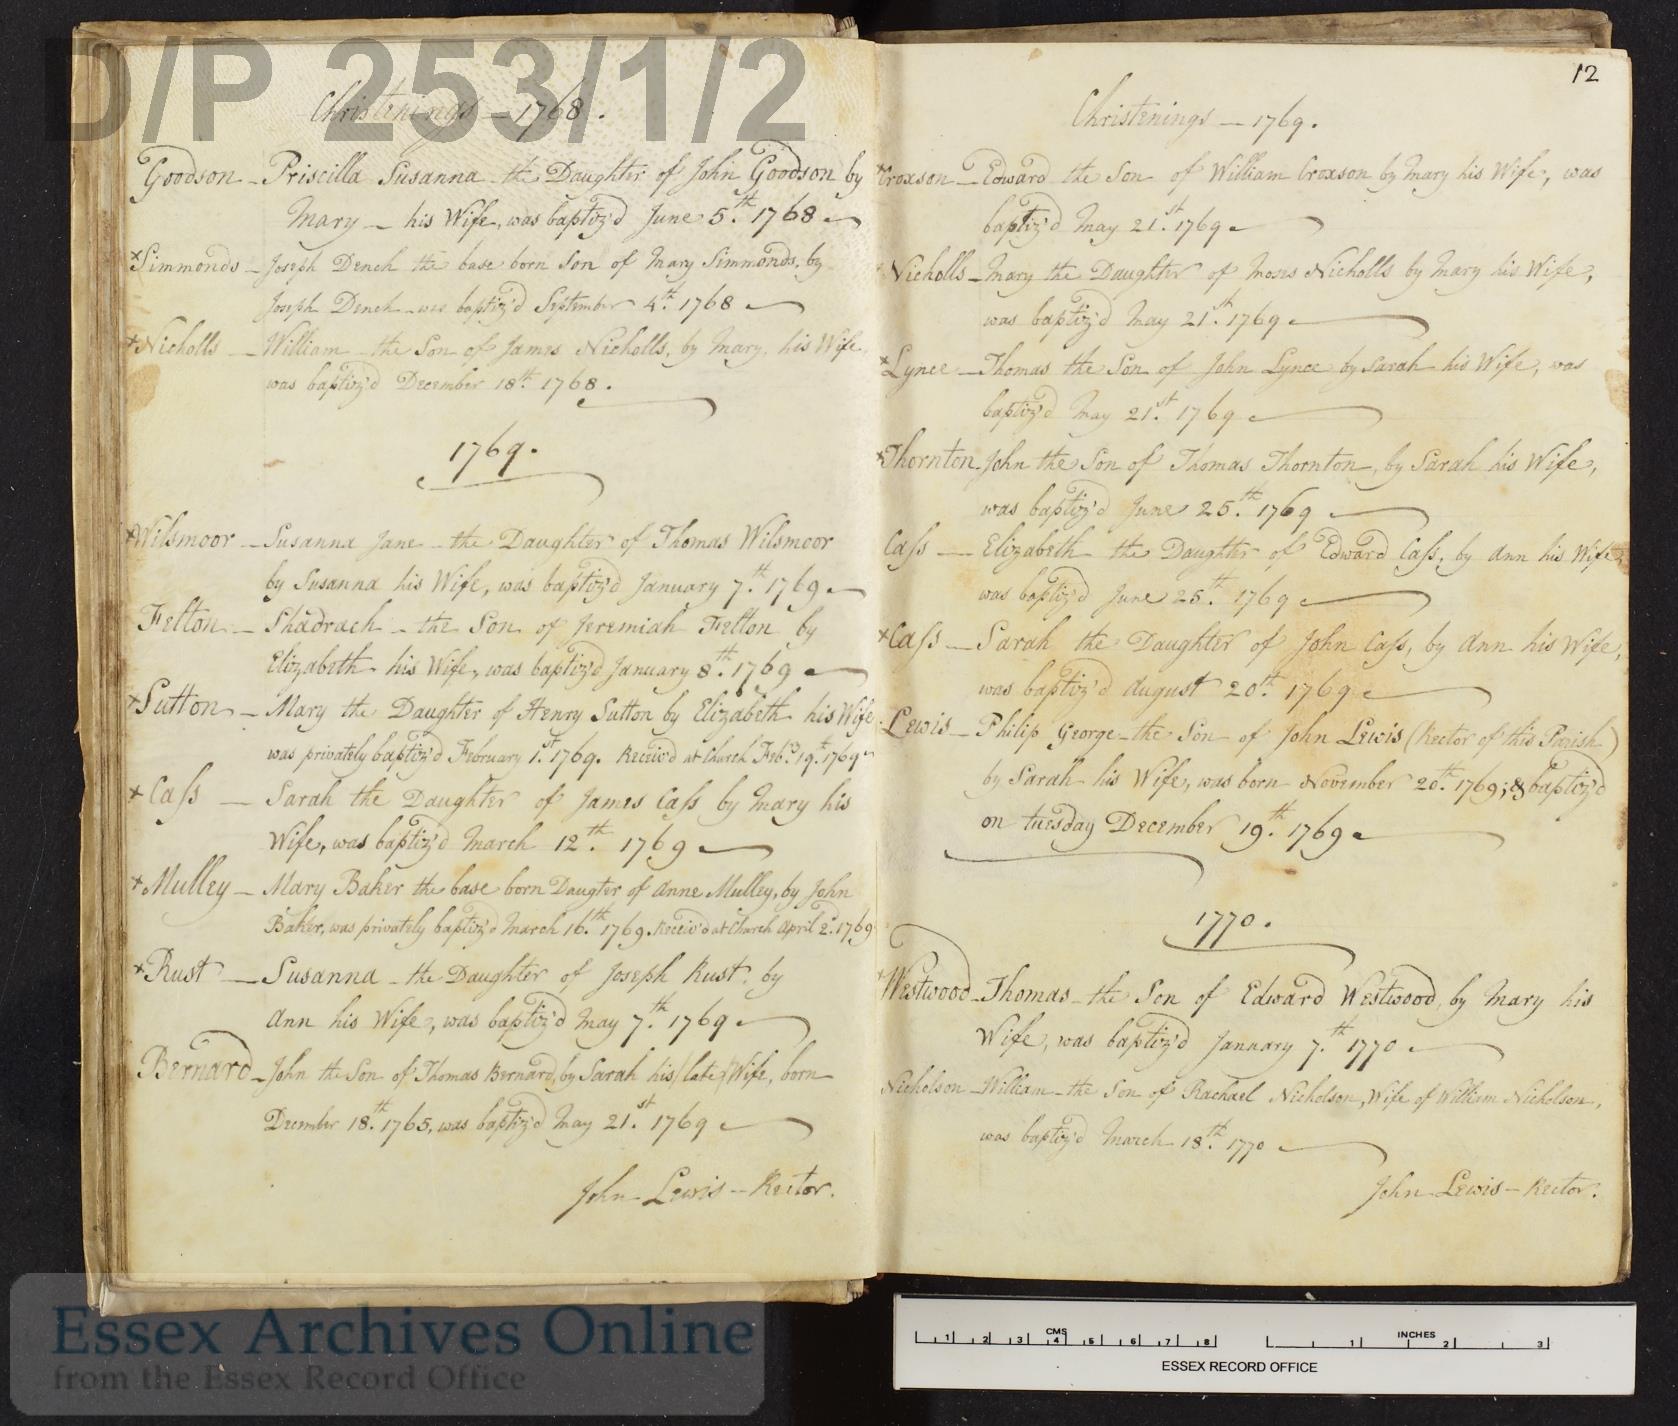 D/P 253/1/2
Christenings — 1768.
Goodson — Priscilla Susanna the Daughter of John Goodson by
Mary — his Wife, was baptiz'd June 5.th 1768
×Simmonds — Joseph Dench the base born Son of Mary Simmonds, by
Joseph Dench was baptiz'd September 4.th 1768
×Nicholls — William the Son of James Nicholls, by Mary, his Wife,
was baptiz'd December 18th 1768.
1769.
×Wilsmoor — Susanna Jane — the Daughter of Thomas Wilsmoor
by Susanna his Wife, was baptiz'd January 7.th 1769
Felton — Shadrach — the Son of Jeremiah Felton by
Elizabeth his Wife, was baptiz'd January 8.th 1769
×Sutton — Mary the Daughter of Henry Sutton by Elizabeth his Wife
was privately baptiz'd February 1.st 1769. Receiv'd at Church Feb.ry 19.th 1769
×Cass — Sarah the Daughter of James Cass by Mary his
Wife, was baptiz'd March 12.th 1769
×Mulley — Mary Baker the base born Daugter of Anne Mulley, by John
Baker, was privately baptiz'd March 16.th 1769. Receiv'd at Church April 2.d 1769
×Rust — Susanna — the Daughter of Joseph Rust, by
Ann his Wife, was baptiz'd May 7.th 1769
Bernard — John the Son of Thomas Bernard, by Sarah his (late) Wife, born
December 18.th 1765, was baptiz'd May 21.st 1769
John Lewis — Rector.
12
Christenings — 1769.
×Croxson — Edward the Son of William Croxson by Mary his Wife, was
baptiz'd May 21.st 1769
Nicholls — Mary the Daughter of Moses Nicholls by Mary his Wife,
was baptiz'd May 21.st 1769
×Lynce — Thomas the Son of John Lynce by Sarah his Wife, was
baptiz'd May 21.st 1769
×Thornton — John the Son of Thomas Thornton, by Sarah his Wife,
was baptiz'd June 25.th 1769
Cass — Elizabeth the Daughter of Edward Cass, by Ann his Wife,
was baptiz'd June 25.th 1769
×Cass — Sarah the Daughter of John Cass, by Ann his Wife,
was baptiz'd August 20.th 1769
Lewis — Philip George — the Son of John Lewis (Rector of this Parish)
by Sarah his Wife, was born November 20.th 1769; & baptiz'd
on tuesday December 19.th 1769
1770.
×Westwood — Thomas — the Son of Edward Westwood, by Mary his
Wife, was baptiz'd January 7.th 1770
Nicholson — William — the Son of Rachael Nicholson, Wife of William Nicholson,
was baptiz'd March 18.th 1770
John Lewis — Rector.
Essex Archives Online
from the Essex Record Office
CMS
1 2 3 4 5 6 7 8
INCHES
1 2 3
ESSEX RECORD OFFICE